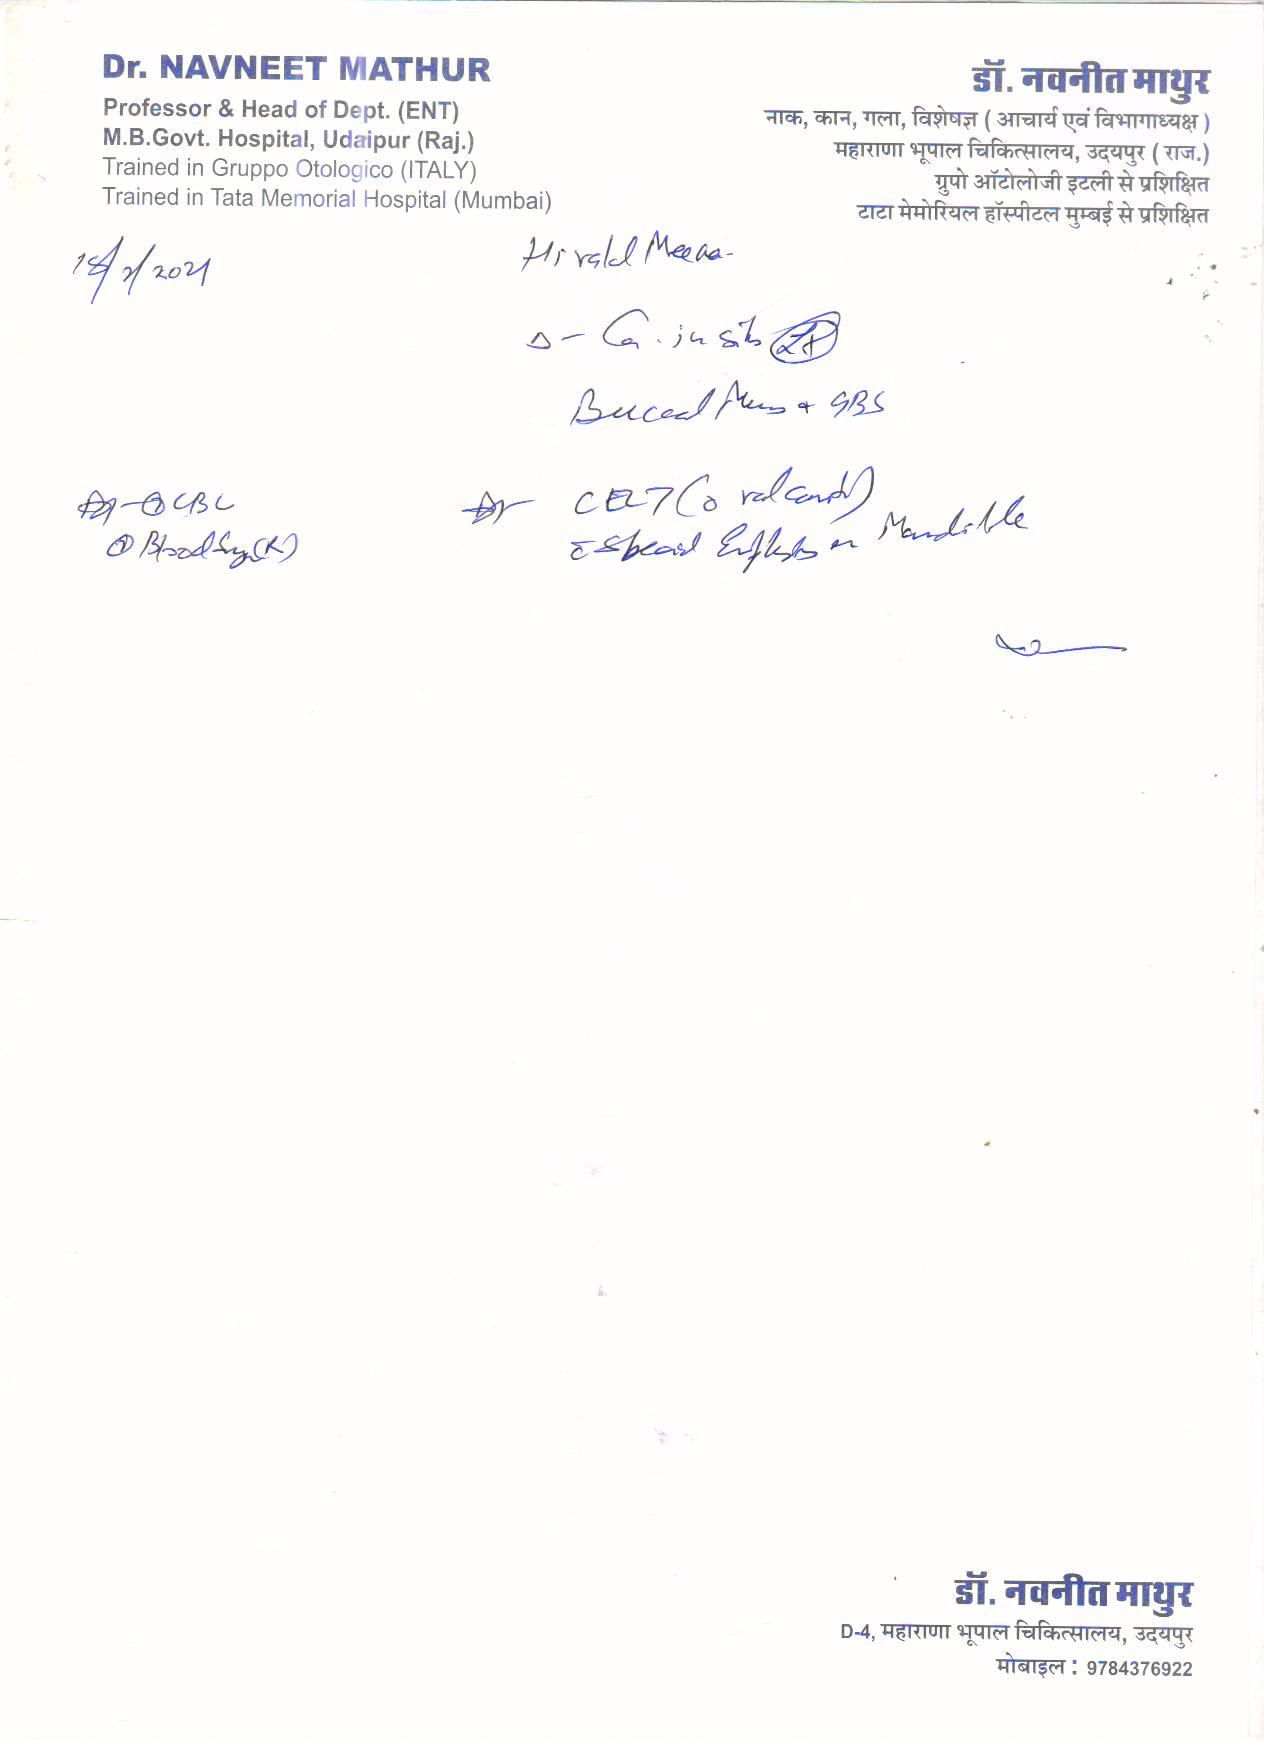 Dr. NAVNEET MATHUR
Professor & Head of Dept. (ENT)
M.B.Govt. Hospital, Udaipur (Raj.)
Trained in Gruppo Otologico (ITALY)
Trained in Tata Memorial Hospital (Mumbai)
डॉ. नवनीत माथुर
नाक, कान, गला, विशेषज्ञ ( आचार्य एवं विभागाध्यक्ष )
महाराणा भूपाल चिकित्सालय, उदयपुर ( राज.)
ग्रुपो ऑटोलोजी इटली से प्रशिक्षित
टाटा मेमोरियल हॉस्पीटल मुम्बई से प्रशिक्षित
2021
Hiralal Meena
Δ - Ca. in situ Lt
Buccal + GBS
CBC
Blood Sug (R)
CECT (oral cavity)
on Mandible
डॉ. नवनीत माथुर
D-4, महाराणा भूपाल चिकित्सालय, उदयपुर
मोबाइल : 9784376922